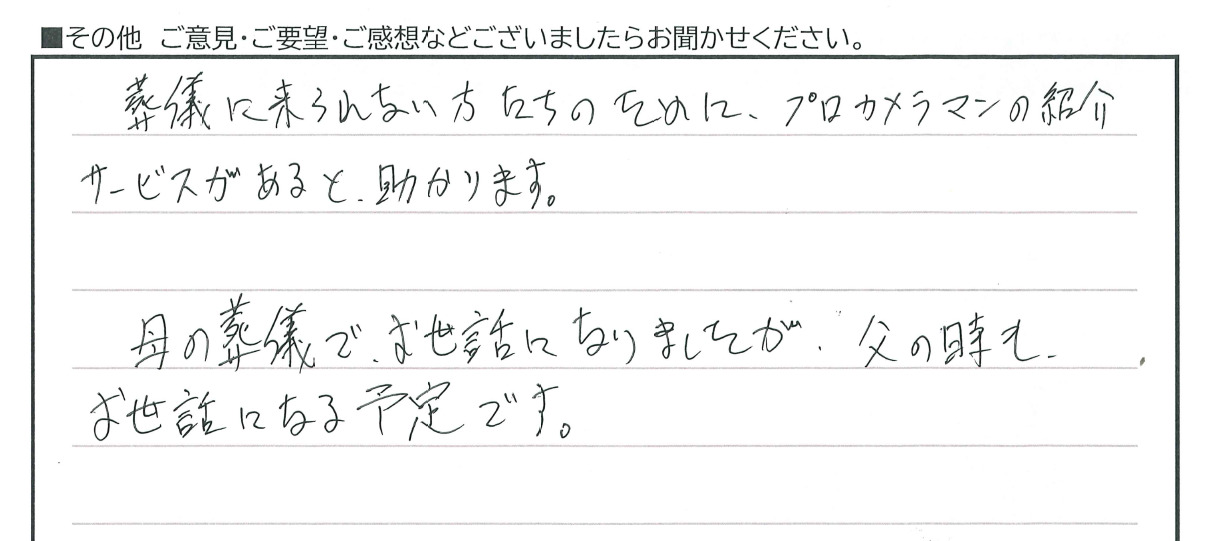 ■その他 ご意見・ご要望・ご感想などございましたらお聞かせください。
葬儀に来られない方たちのために、プロカメラマンの紹介
サービスがあると、助かります。
母の葬儀で、お世話になりましたが、父の時も、
お世話になる予定です。